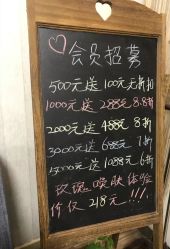 会员招募
500元送100元无折扣
1000元送288元8.8折
2000元送488元8折
3000元送688元7折
5000元送1088元6折
玫瑰焕肤体验
价仅218元!!!